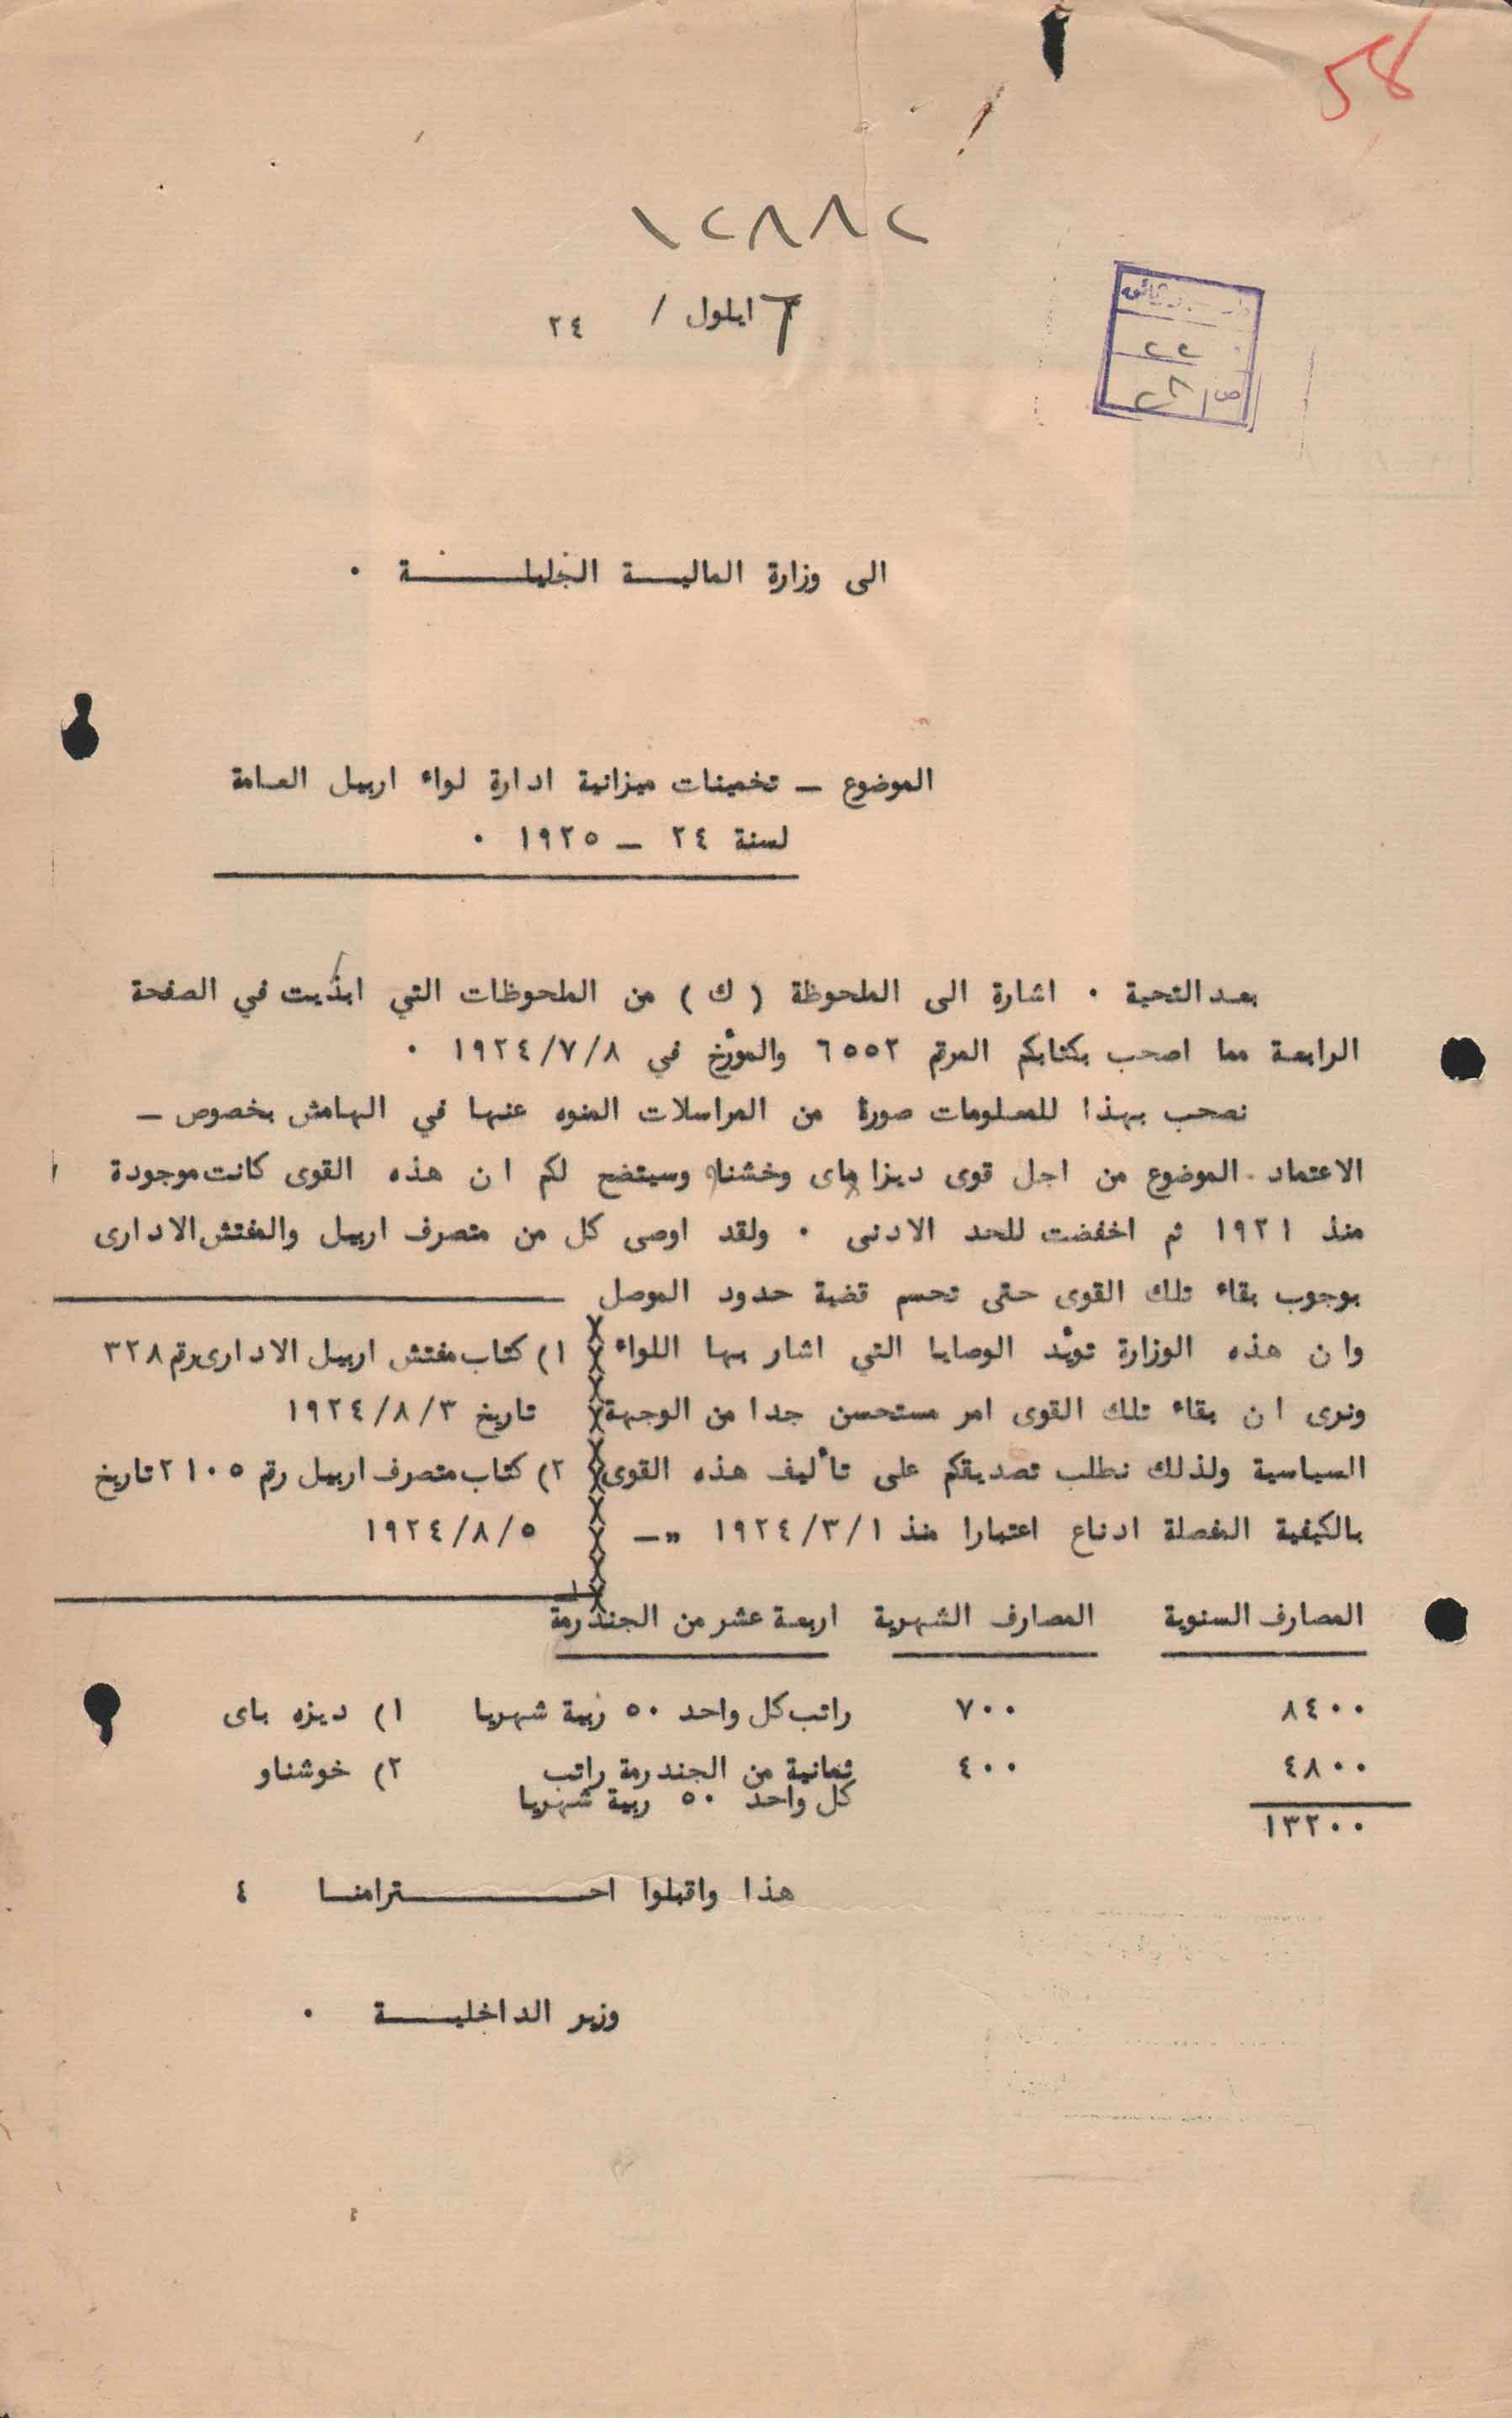 58
١٢٨٨٢
٦ ايلول / ٢٤
٢٢
ص / ٢٨
الى وزارة المالية الجليلة ٠
الموضوع – تخمينات ميزانية ادارة لواء اربيل العامة
لسنة ٢٤ – ١٩٢٥ ٠
بعد التحية ٠ اشارة الى الملحوظة ( ك ) من الملحوظات التي ابديت في الصفحة
الرابعة مما اصحب بكتابكم المرقم ٦٥٥٢ والمؤرخ في ١٩٢٤/٧/٨ ٠
نصحب بهذا للمعلومات صورة من المراسلات المنوه عنها في الهامش بخصوص –
الاعتماد الموضوع من اجل قوى ديزا ياى وخشناو وسيتضح لكم ان هذه القوى كانت موجودة
منذ ١٩٢١ ثم اخفضت للحد الادنى ٠ ولقد اوصى كل من متصرف اربيل والمفتش الادارى
بوجوب بقاء تلك القوى حتى تحسم قضية حدود الموصل
وان هذه الوزارة تؤيد الوصايا التي اشار بها اللواء
ونرى ان بقاء تلك القوى امر مستحسن جدا من الوجهة
السياسية ولذلك نطلب تصديقكم على تأليف هذه القوى
بالكيفية المفصلة ادناع اعتبارا منذ ١٩٢٤/٣/١ "–
١) كتاب مفتش اربيل الادارى رقم ٣٢٨
تاريخ ١٩٢٤/٨/٣
٢) كتاب متصرف اربيل رقم ٢١٠٥ تاريخ
١٩٢٤/٨/٥
المصارف السنوية المصارف الشهرية اربعة عشر من الجندرمة
٨٤٠٠ ٧٠٠ راتب كل واحد ٥٠ ربية شهريا ١) ديزه باى
٤٨٠٠ ٤٠٠ ثمانية من الجندرمة راتب ٢) خوشناو
كل واحد ٥٠ ربية شهريا
١٣٢٠٠
هذا واقبلوا احترامنا ٤
وزير الداخلية ٠